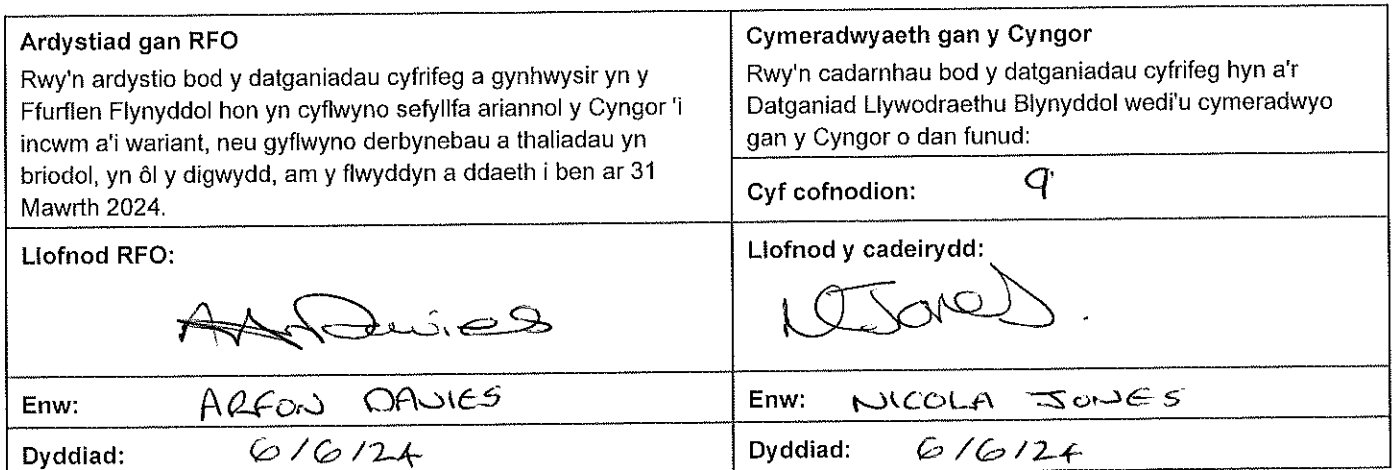 Ardystiad gan RFO
Rwy'n ardystio bod y datganiadau cyfrifeg a gynhwysir yn y
Ffurflen Flynyddol hon yn cyflwyno sefyllfa ariannol y Cyngor 'i
incwm a'i wariant, neu gyflwyno derbynebau a thaliadau yn
briodol, yn ôl y digwydd, am y flwyddyn a ddaeth i ben ar 31
Mawrth 2024.
Llofnod RFO:
AA Davies
Enw: ARFON DAVIES
Dyddiad: 6/6/24
Cymeradwyaeth gan y Cyngor
Rwy'n cadarnhau bod y datganiadau cyfrifeg hyn a'r
Datganiad Llywodraethu Blynyddol wedi'u cymeradwyo
gan y Cyngor o dan funud:
Cyf cofnodion: 9
Llofnod y cadeirydd:
NJones.
Enw: NICOLA JONES
Dyddiad: 6/6/24